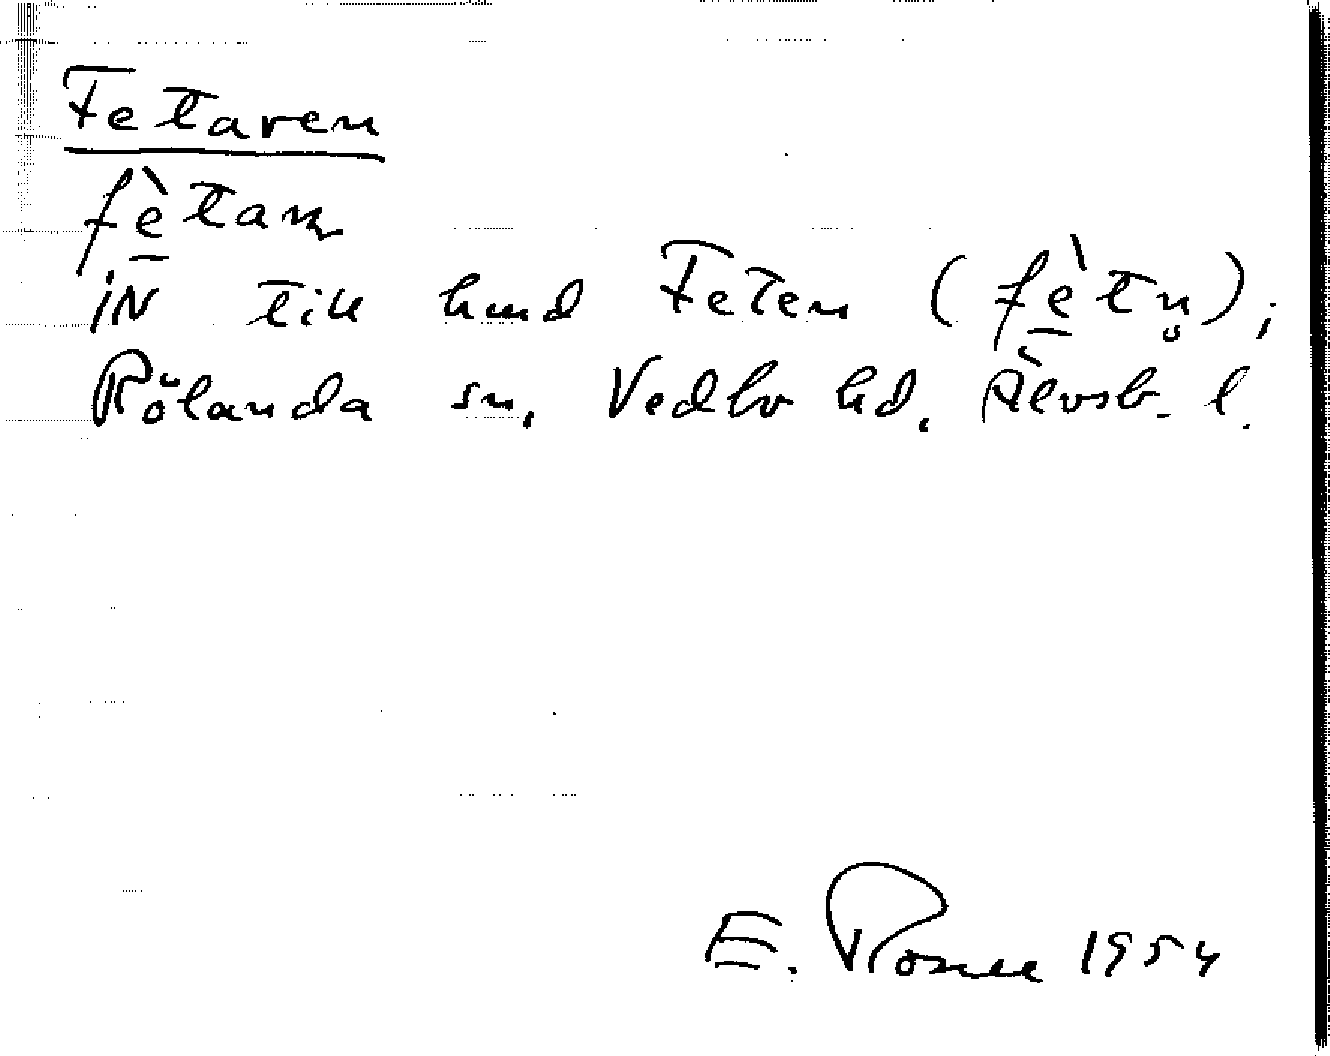 Fetaren
fe̱̊̀taɳ
iN till hund Feten (fè̱tn̥);
Rölanda sn, Vedbo hd, Älvsb. l.
E. 1954